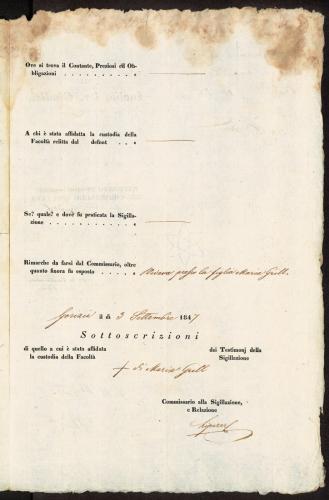 Ove si trova il Contante, Preziosi ed Ob-
bligazioni . . . . . . . . . .
A chi è stata affidatta la custodia della
Facoltà relitta dal defont . . .
Se? quale? e dov'è fu praticata la Sigilla-
zione . . . . . . . . . . . .
Rimarche da farsi dal Commissario, oltre
quanto finora fu esposto . . . . . Viveva presso la figlia Maria Grell.
Gorizia il di 3 Settembre 1847
Sottoscrizioni
di quello a cui è stata affidata
la custodia della Facoltà
dei Testimonj della
Sigillazione
+ di Maria Grell
Commissario alla Sigillazione,
e Relazione